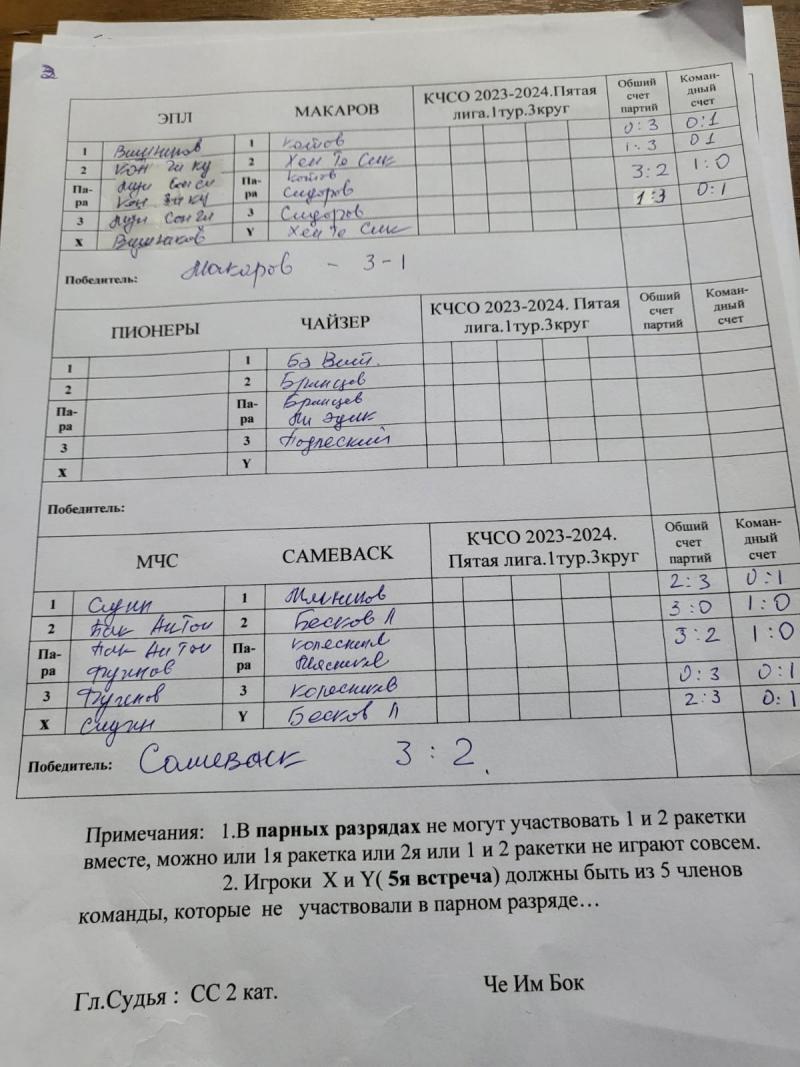 3
ЭПЛ МАКАРОВ КЧСО 2023-2024.Пятая лига.1тур.3круг Общий счет партий Коман-дный счет
1 1 0:3 0:1
2 2 Хен Те Сик 1:3 0 1
Па-ра Па-ра Сидоров 3:2 1:0
3 3 Сидоров 1:3 0:1
X Вишняков Y Хен Те Сик
Победитель: Макаров - 3-1
ПИОНЕРЫ ЧАЙЗЕР КЧСО 2023-2024. Пятая лига.1тур.3круг Общий счет партий Коман-дный счет
1 1
2 2 Брянцев
Па-ра Па-ра Брянцев
3 3 Подлеский
X Y
Победитель:
МЧС CAMEBACK КЧСО 2023-2024. Пятая лига.1тур.3круг Общий счет партий Коман-дный счет
1 1 2:3 0:1
2 Пак Антон 2 Бесков Л 3:0 1:0
Па-ра Пак Антон Па-ра Колесников 3:2 1:0
3 3 Колесников 0:3 0:1
X Y Бесков Л 2:3 0:1
Победитель: Самеваск 3:2
Примечания: 1.В парных разрядах не могут участвовать 1 и 2 ракетки
вместе, можно или 1я ракетка или 2я или 1 и 2 ракетки не играют совсем.
2. Игроки X и Y( 5я встреча) должны быть из 5 членов
команды, которые не участвовали в парном разряде…
Гл.Судья : СС 2 кат. Че Им Бок